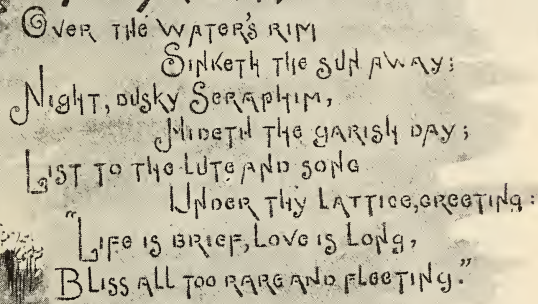 Over the water's rim
Sinketh the sun away;
Night, dusky Seraphim,
Hideth the garish day;
List to the lute and song
Under thy lattice, greeting:
"Life is brief, Love is long,
Bliss all too rare and fleeting."